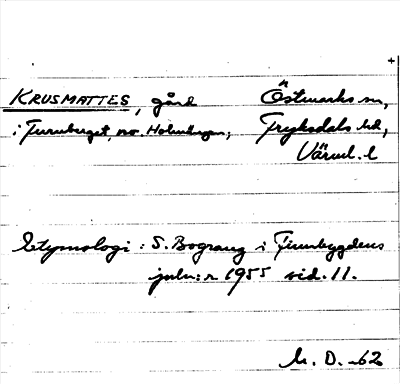 KRUSMATTES, gård Östmarks sn,
i Juruberget, no. Holmhagen, Fryksdals hd,
Värml. l
Etymologi: S. Bograng i Finnbygdens
julnr 1955 sid. 11.
M. D. -62